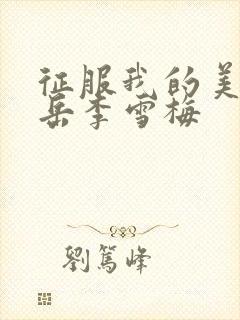 征服我的美
岳李雪梅
劉篤峰